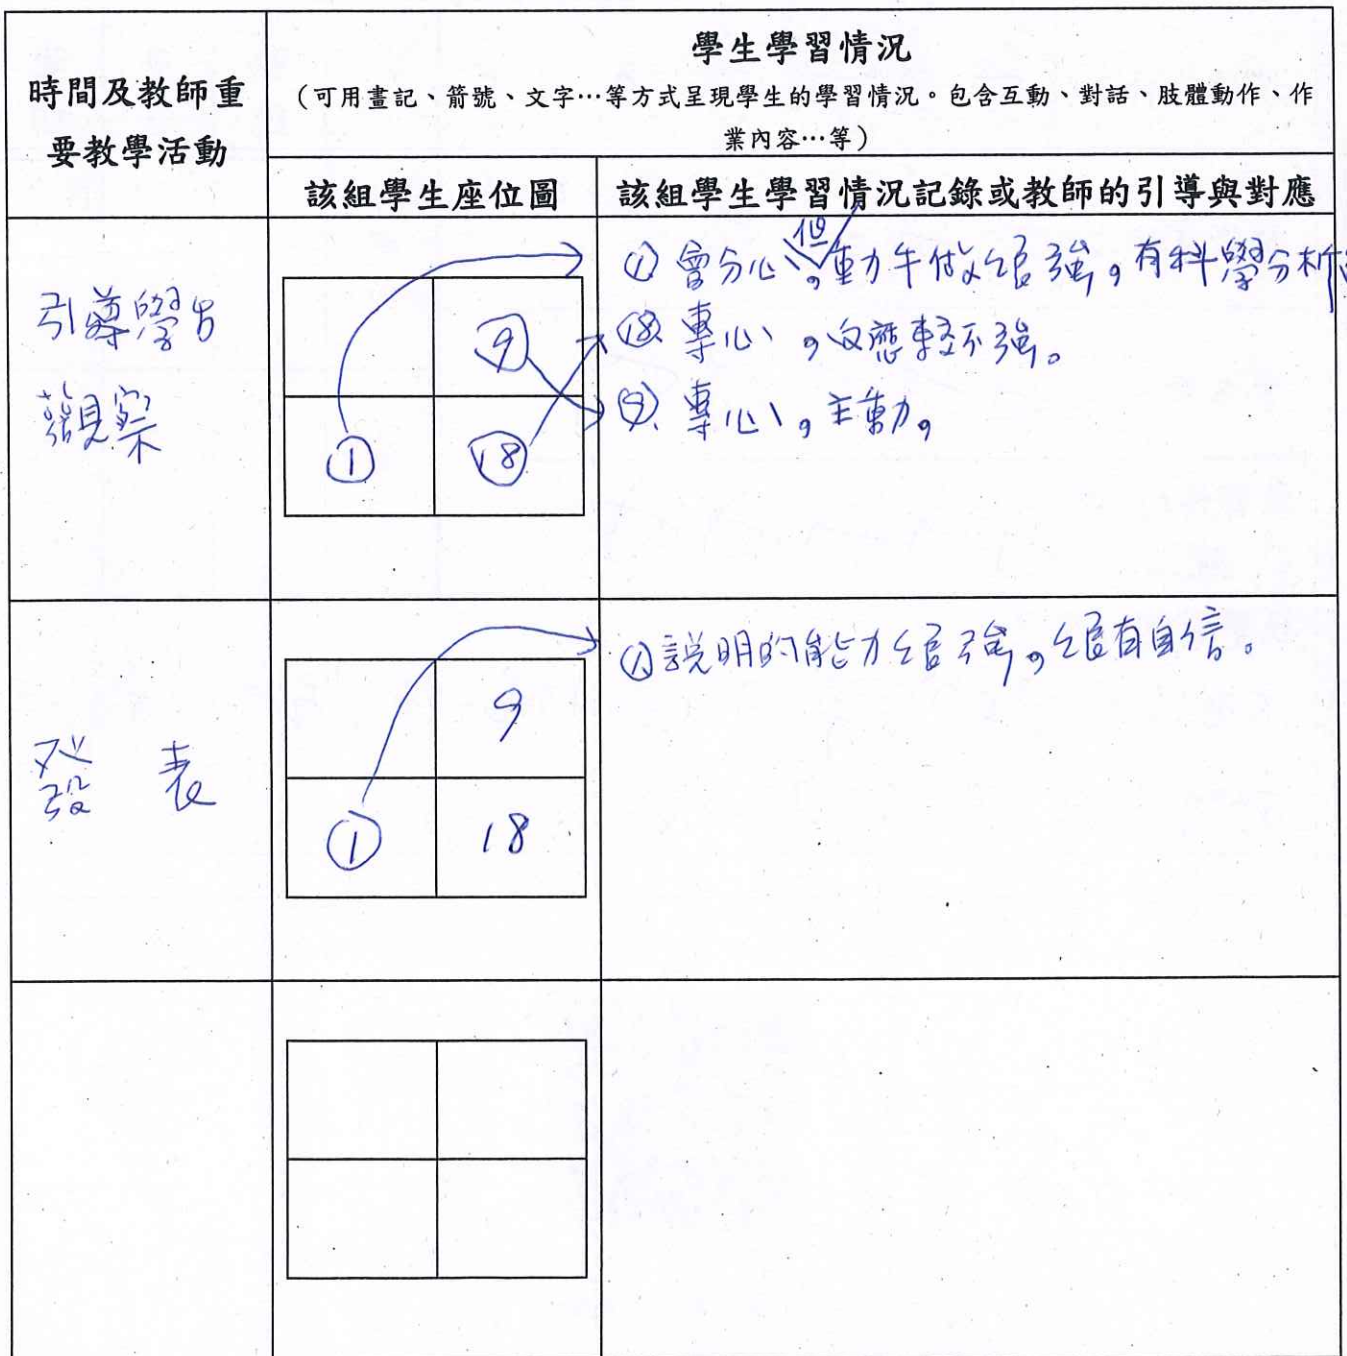 時間及教師重
要教學活動
學生學習情況
（可用畫記、箭號、文字…等方式呈現學生的學習情況。包含互動、對話、肢體動作、作
業內容…等）
該組學生座位圖
該組學生學習情況記錄或教師的引導與對應
引導學生
觀察
9
① 18
① 會分心，但動手做很強，有科學分析
⑱ 專心，反應較不強。
⑨ 專心，主動，
發 表
9
① 18
①說明的能力很強，很有自信。